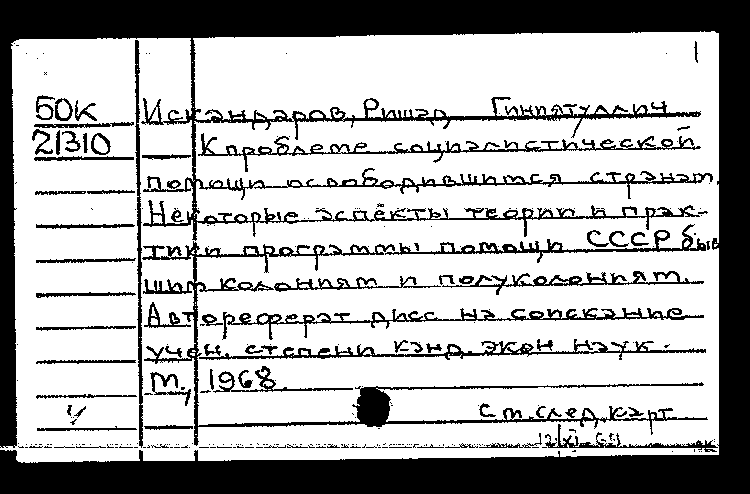 1
50к Искандаров, Ришад Гиниятуллич
21310 К проблеме социалистической
помощи освободившимся странам.
Некоторые аспекты теории и прак-
тики программы помощи СССР быв
шим колониям и полуколониям.
Автореферат дисс на соискание
учен. степени канд. экон наук.
М., 1968.
См. след. карт